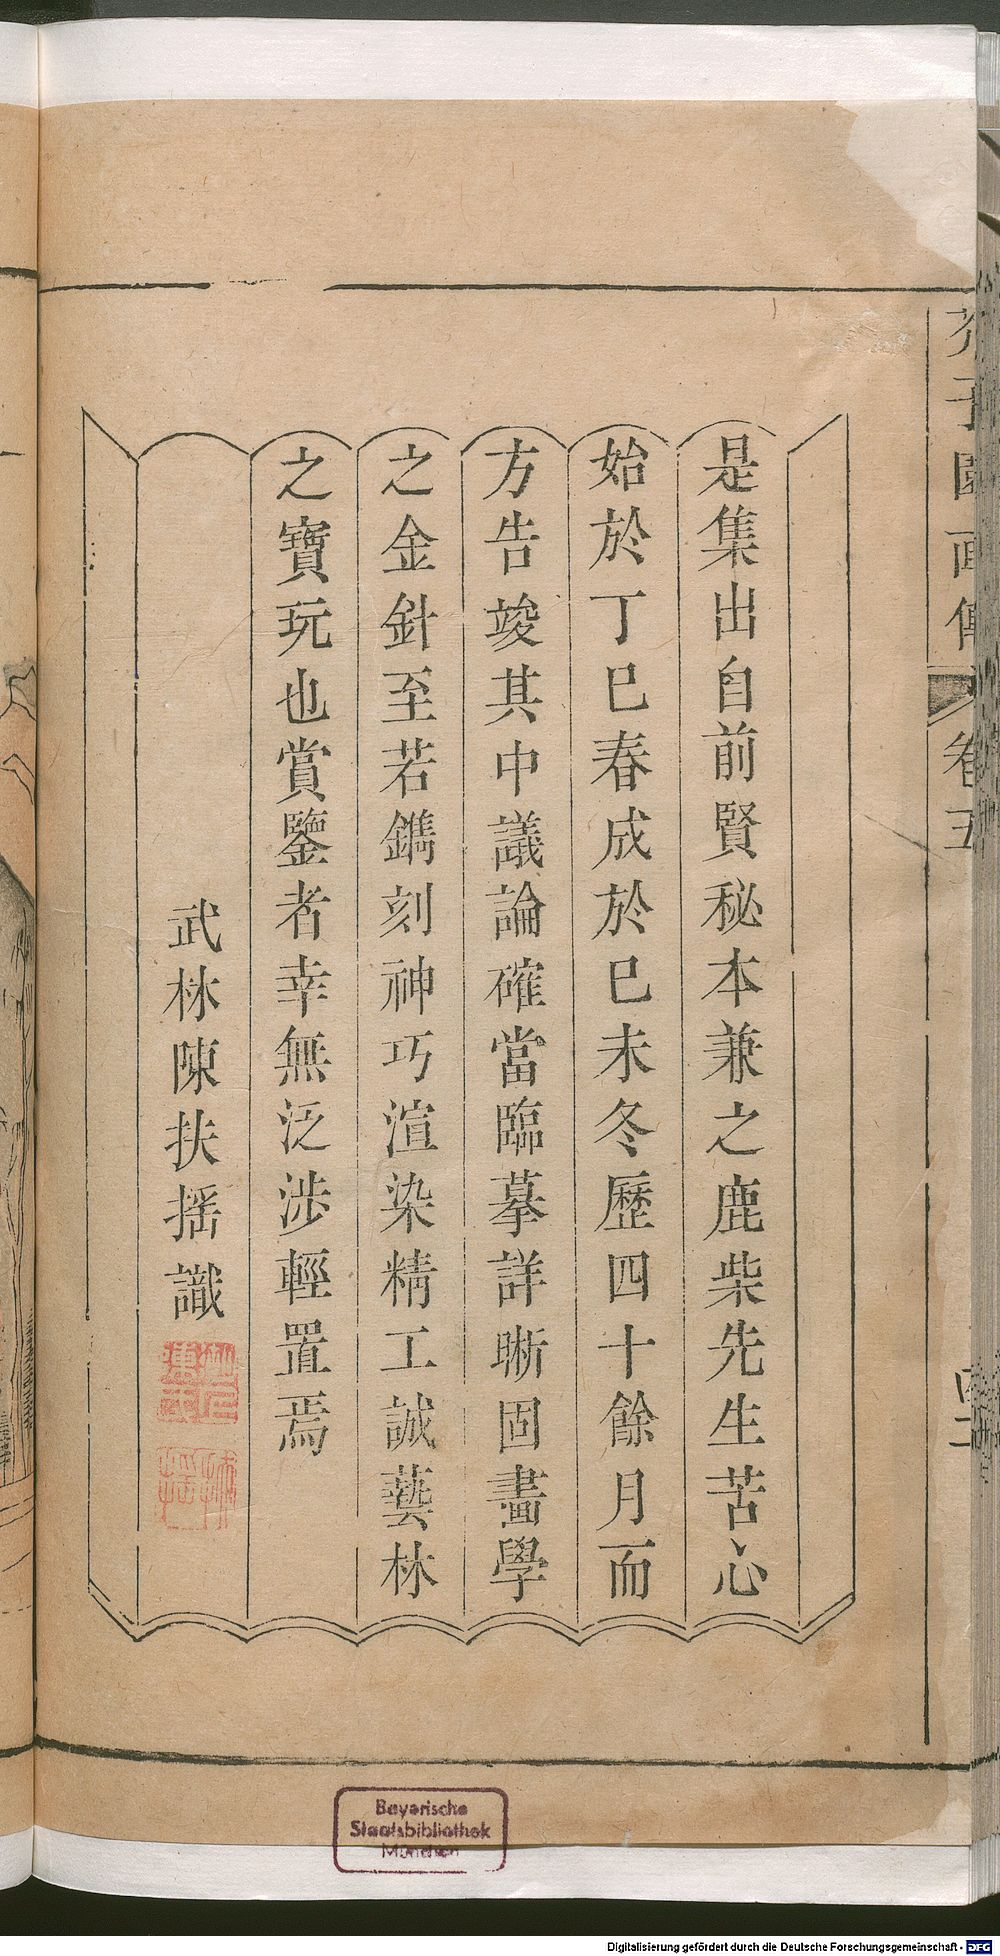 芥子園画傳
卷五
是集出自前賢秘本兼之鹿柴先生苦心
始於丁巳春成於巳未冬歷四十餘月而
方告竣其中議論確當臨摹詳晰固畫學
之金針至若鐫刻神巧渲染精工誠藝林
之寶玩也賞鑒者幸無泛涉輕置焉
武林陳扶揺識
Bayerische
Staatsbibliothek
München
Digitalisierung gefördert durch die Deutsche Forschungsgemeinschaft - DFG